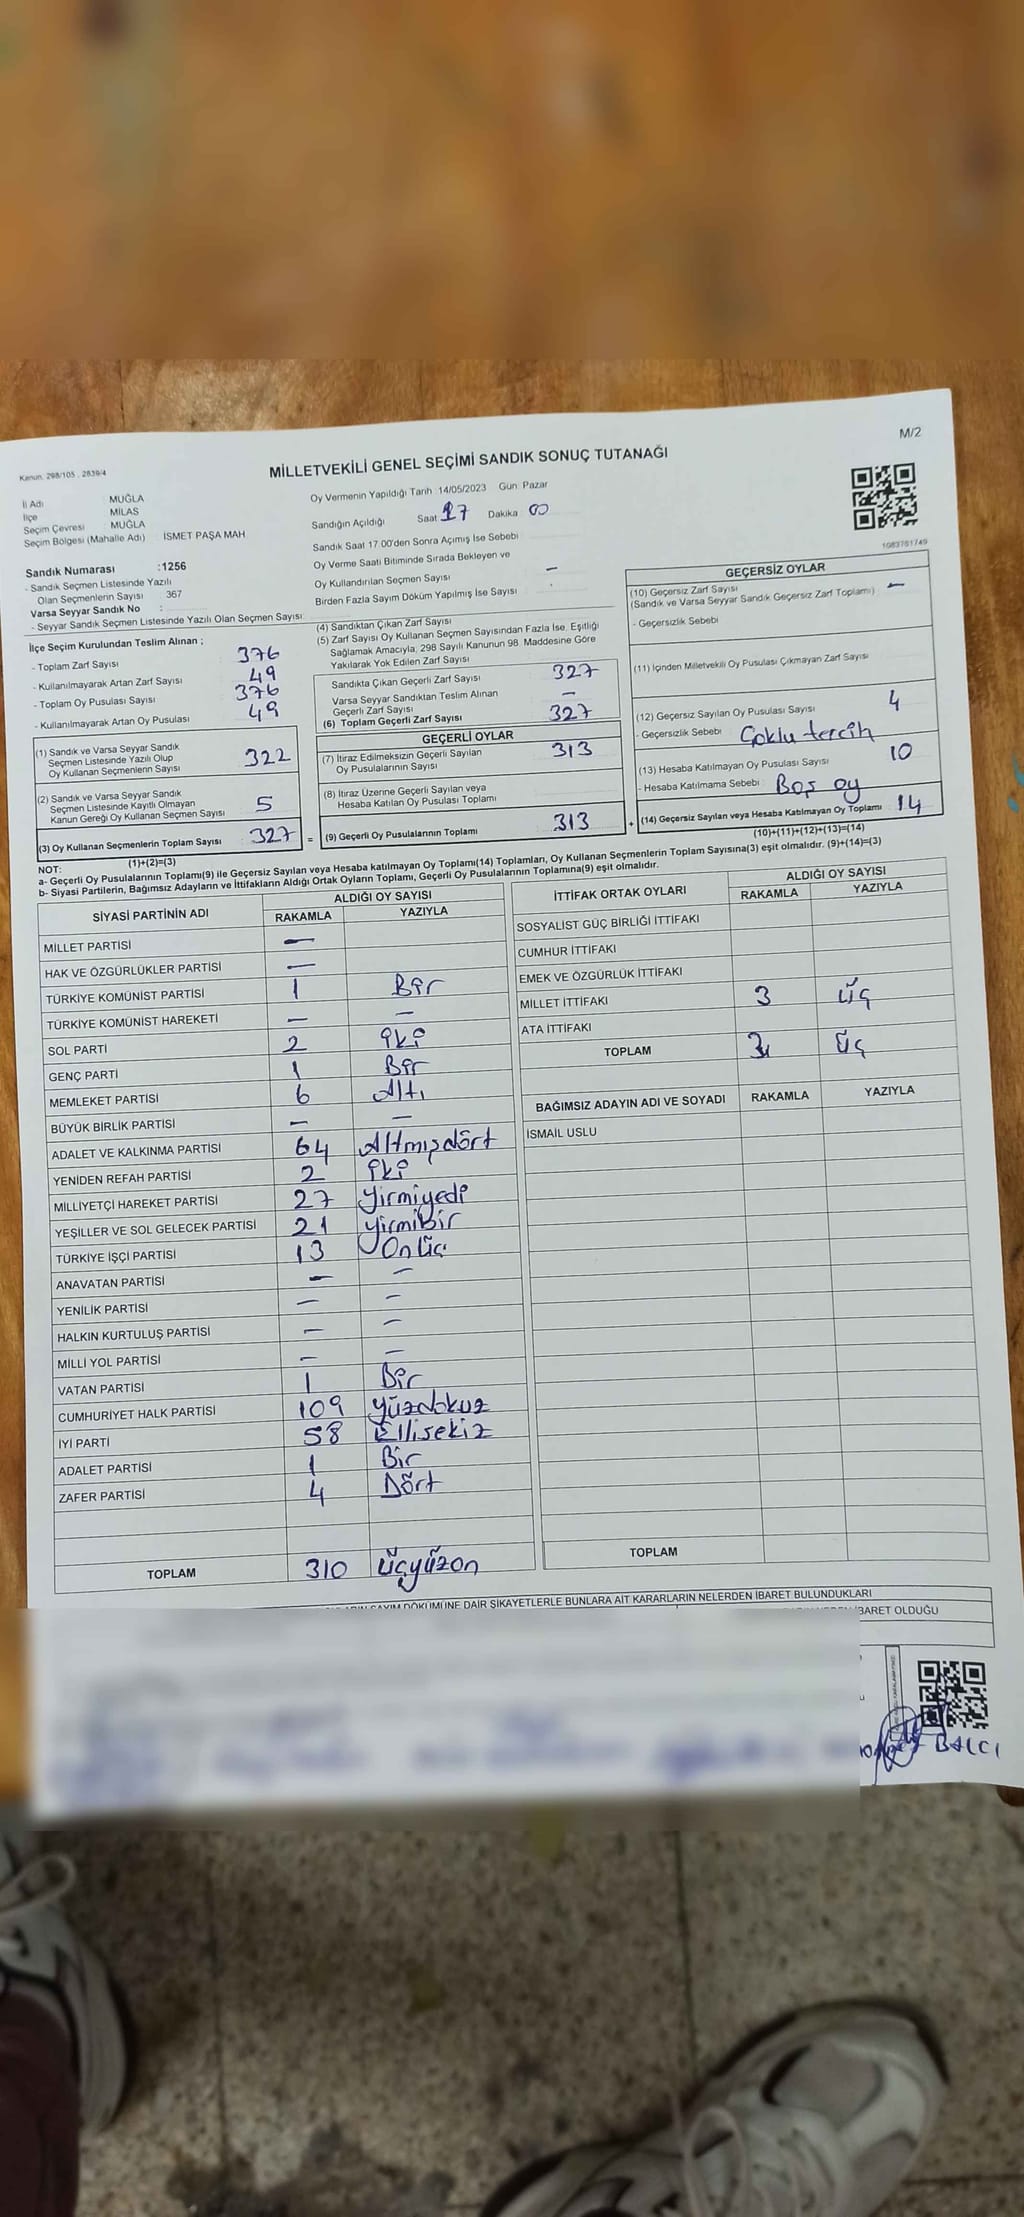 M/2
Kanun: 298/105 , 2839/4
MİLLETVEKİLİ GENEL SEÇİMİ SANDIK SONUÇ TUTANAĞI
İl Adı : MUĞLA
İlçe : MİLAS
Seçim Çevresi : MUĞLA
Seçim Bölgesi (Mahalle Adı) : İSMET PAŞA MAH
Sandık Numarası :1256
- Sandık Seçmen Listesinde Yazılı
Olan Seçmenlerin Sayısı 367
Varsa Seyyar Sandık No :
- Seyyar Sandık Seçmen Listesinde Yazılı Olan Seçmen Sayısı:
Oy Vermenin Yapıldığı Tarih :14/05/2023 Gün: Pazar
Sandığın Açıldığı Saat 17 Dakika 00
Sandık Saat 17.00'den Sonra Açılmış İse Sebebi
Oy Verme Saati Bitiminde Sırada Bekleyen ve
Oy Kullandırılan Seçmen Sayısı —
Birden Fazla Sayım Döküm Yapılmış İse Sayısı
1083761749
İlçe Seçim Kurulundan Teslim Alınan ;
- Toplam Zarf Sayısı 376
- Kullanılmayarak Artan Zarf Sayısı 49
- Toplam Oy Pusulası Sayısı 376
- Kullanılmayarak Artan Oy Pusulası 49
(1) Sandık ve Varsa Seyyar Sandık
Seçmen Listesinde Yazılı Olup
Oy Kullanan Seçmenlerin Sayısı 322
(2) Sandık ve Varsa Seyyar Sandık
Seçmen Listesinde Kayıtlı Olmayan
Kanun Gereği Oy Kullanan Seçmen Sayısı 5
(3) Oy Kullanan Seçmenlerin Toplam Sayısı 327 =
(1)+(2)=(3)
(4) Sandıktan Çıkan Zarf Sayısı
(5) Zarf Sayısı Oy Kullanan Seçmen Sayısından Fazla İse, Eşitliği
Sağlamak Amacıyla, 298 Sayılı Kanunun 98. Maddesine Göre
Yakılarak Yok Edilen Zarf Sayısı
Sandıkta Çıkan Geçerli Zarf Sayısı 327
Varsa Seyyar Sandıktan Teslim Alınan
Geçerli Zarf Sayısı —
(6) Toplam Geçerli Zarf Sayısı 327
GEÇERLİ OYLAR
(7) İtiraz Edilmeksizin Geçerli Sayılan
Oy Pusulalarının Sayısı 313
(8) İtiraz Üzerine Geçerli Sayılan veya
Hesaba Katılan Oy Pusulası Toplamı
(9) Geçerli Oy Pusulalarının Toplamı 313 +
GEÇERSİZ OYLAR
(10) Geçersiz Zarf Sayısı
(Sandık ve Varsa Seyyar Sandık Geçersiz Zarf Toplamı) —
- Geçersizlik Sebebi
(11) İçinden Milletvekili Oy Pusulası Çıkmayan Zarf Sayısı
(12) Geçersiz Sayılan Oy Pusulası Sayısı 4
- Geçersizlik Sebebi Çoklu tercih
(13) Hesaba Katılmayan Oy Pusulası Sayısı 10
- Hesaba Katılmama Sebebi Boş oy
(14) Geçersiz Sayılan veya Hesaba Katılmayan Oy Toplamı 14
(10)+(11)+(12)+(13)=(14)
NOT:
a- Geçerli Oy Pusulalarının Toplamı(9) ile Geçersiz Sayılan veya Hesaba katılmayan Oy Toplamı(14) Toplamları, Oy Kullanan Seçmenlerin Toplam Sayısına(3) eşit olmalıdır. (9)+(14)=(3)
b- Siyasi Partilerin, Bağımsız Adayların ve İttifakların Aldığı Ortak Oyların Toplamı, Geçerli Oy Pusulalarının Toplamına(9) eşit olmalıdır.
SİYASİ PARTİNİN ADI ALDIĞI OY SAYISI
RAKAMLA YAZIYLA
MİLLET PARTİSİ —
HAK VE ÖZGÜRLÜKLER PARTİSİ —
TÜRKİYE KOMÜNİST PARTİSİ 1 Bir
TÜRKİYE KOMÜNİST HAREKETİ — —
SOL PARTİ 2 iki
GENÇ PARTİ 1 Bir
MEMLEKET PARTİSİ 6 Altı
BÜYÜK BİRLİK PARTİSİ — —
ADALET VE KALKINMA PARTİSİ 64 Altmışdört
YENİDEN REFAH PARTİSİ 2 iki
MİLLİYETÇİ HAREKET PARTİSİ 27 Yirmiyedi
YEŞİLLER VE SOL GELECEK PARTİSİ 21 yirmibir
TÜRKİYE İŞÇİ PARTİSİ 13 Onüç
ANAVATAN PARTİSİ — —
YENİLİK PARTİSİ — —
HALKIN KURTULUŞ PARTİSİ — —
MİLLİ YOL PARTİSİ — —
VATAN PARTİSİ 1 Bir
CUMHURİYET HALK PARTİSİ 109 yüzdokuz
İYİ PARTİ 58 Ellisekiz
ADALET PARTİSİ 1 Bir
ZAFER PARTİSİ 4 Dört
TOPLAM 310 üçyüzon
İTTİFAK ORTAK OYLARI ALDIĞI OY SAYISI
RAKAMLA YAZIYLA
SOSYALİST GÜÇ BİRLİĞİ İTTİFAKI
CUMHUR İTTİFAKI
EMEK VE ÖZGÜRLÜK İTTİFAKI
MİLLET İTTİFAKI 3 üç
ATA İTTİFAKI
TOPLAM 3 üç
BAĞIMSIZ ADAYIN ADI VE SOYADI RAKAMLA YAZIYLA
İSMAİL USLU
TOPLAM
SAYIM DÖKÜMÜNE DAİR ŞİKAYETLERLE BUNLARA AİT KARARLARIN NELERDEN İBARET BULUNDUKLARI
İBARET OLDUĞU
BALCI